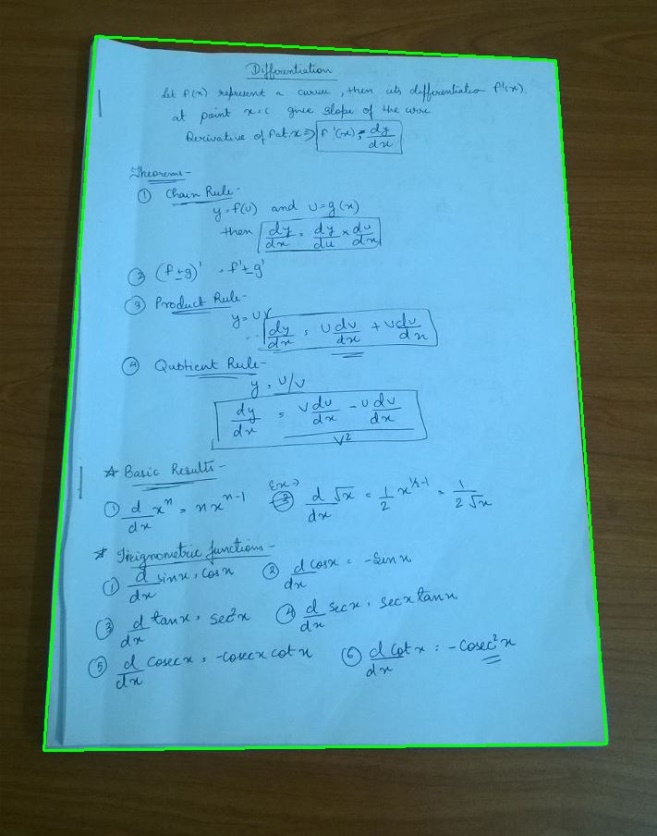 Differentiation
Let f(x) represent a curve, then its differentiation f'(x)
at point x=c give slope of the curve
Derivative of f at x ⇒ f'(x) = dy/dx
Theorems-
① Chain Rule-
y=f(u) and u=g(x)
then dy/dx = dy/du × du/dx
② (f±g)' = f'±g'
③ Product Rule-
y=uv
dy/dx = u dv/dx + v du/dx
④ Quotient Rule-
y = u/v
dy/dx = (v du/dx - u dv/dx)/v²
* Basic Results-
① d/dx xⁿ = n xⁿ⁻¹ Ex⇒ d/dx √x = 1/2 x^(1/2-1) = 1/(2√x)
* Trignometric functions-
① d/dx sinx = cosx ② d/dx cosx = -sinx
③ d/dx tanx = sec²x ④ d/dx secx = secx tanx
⑤ d/dx cosecx = -cosecx cotx ⑥ d/dx cotx = -cosec²x